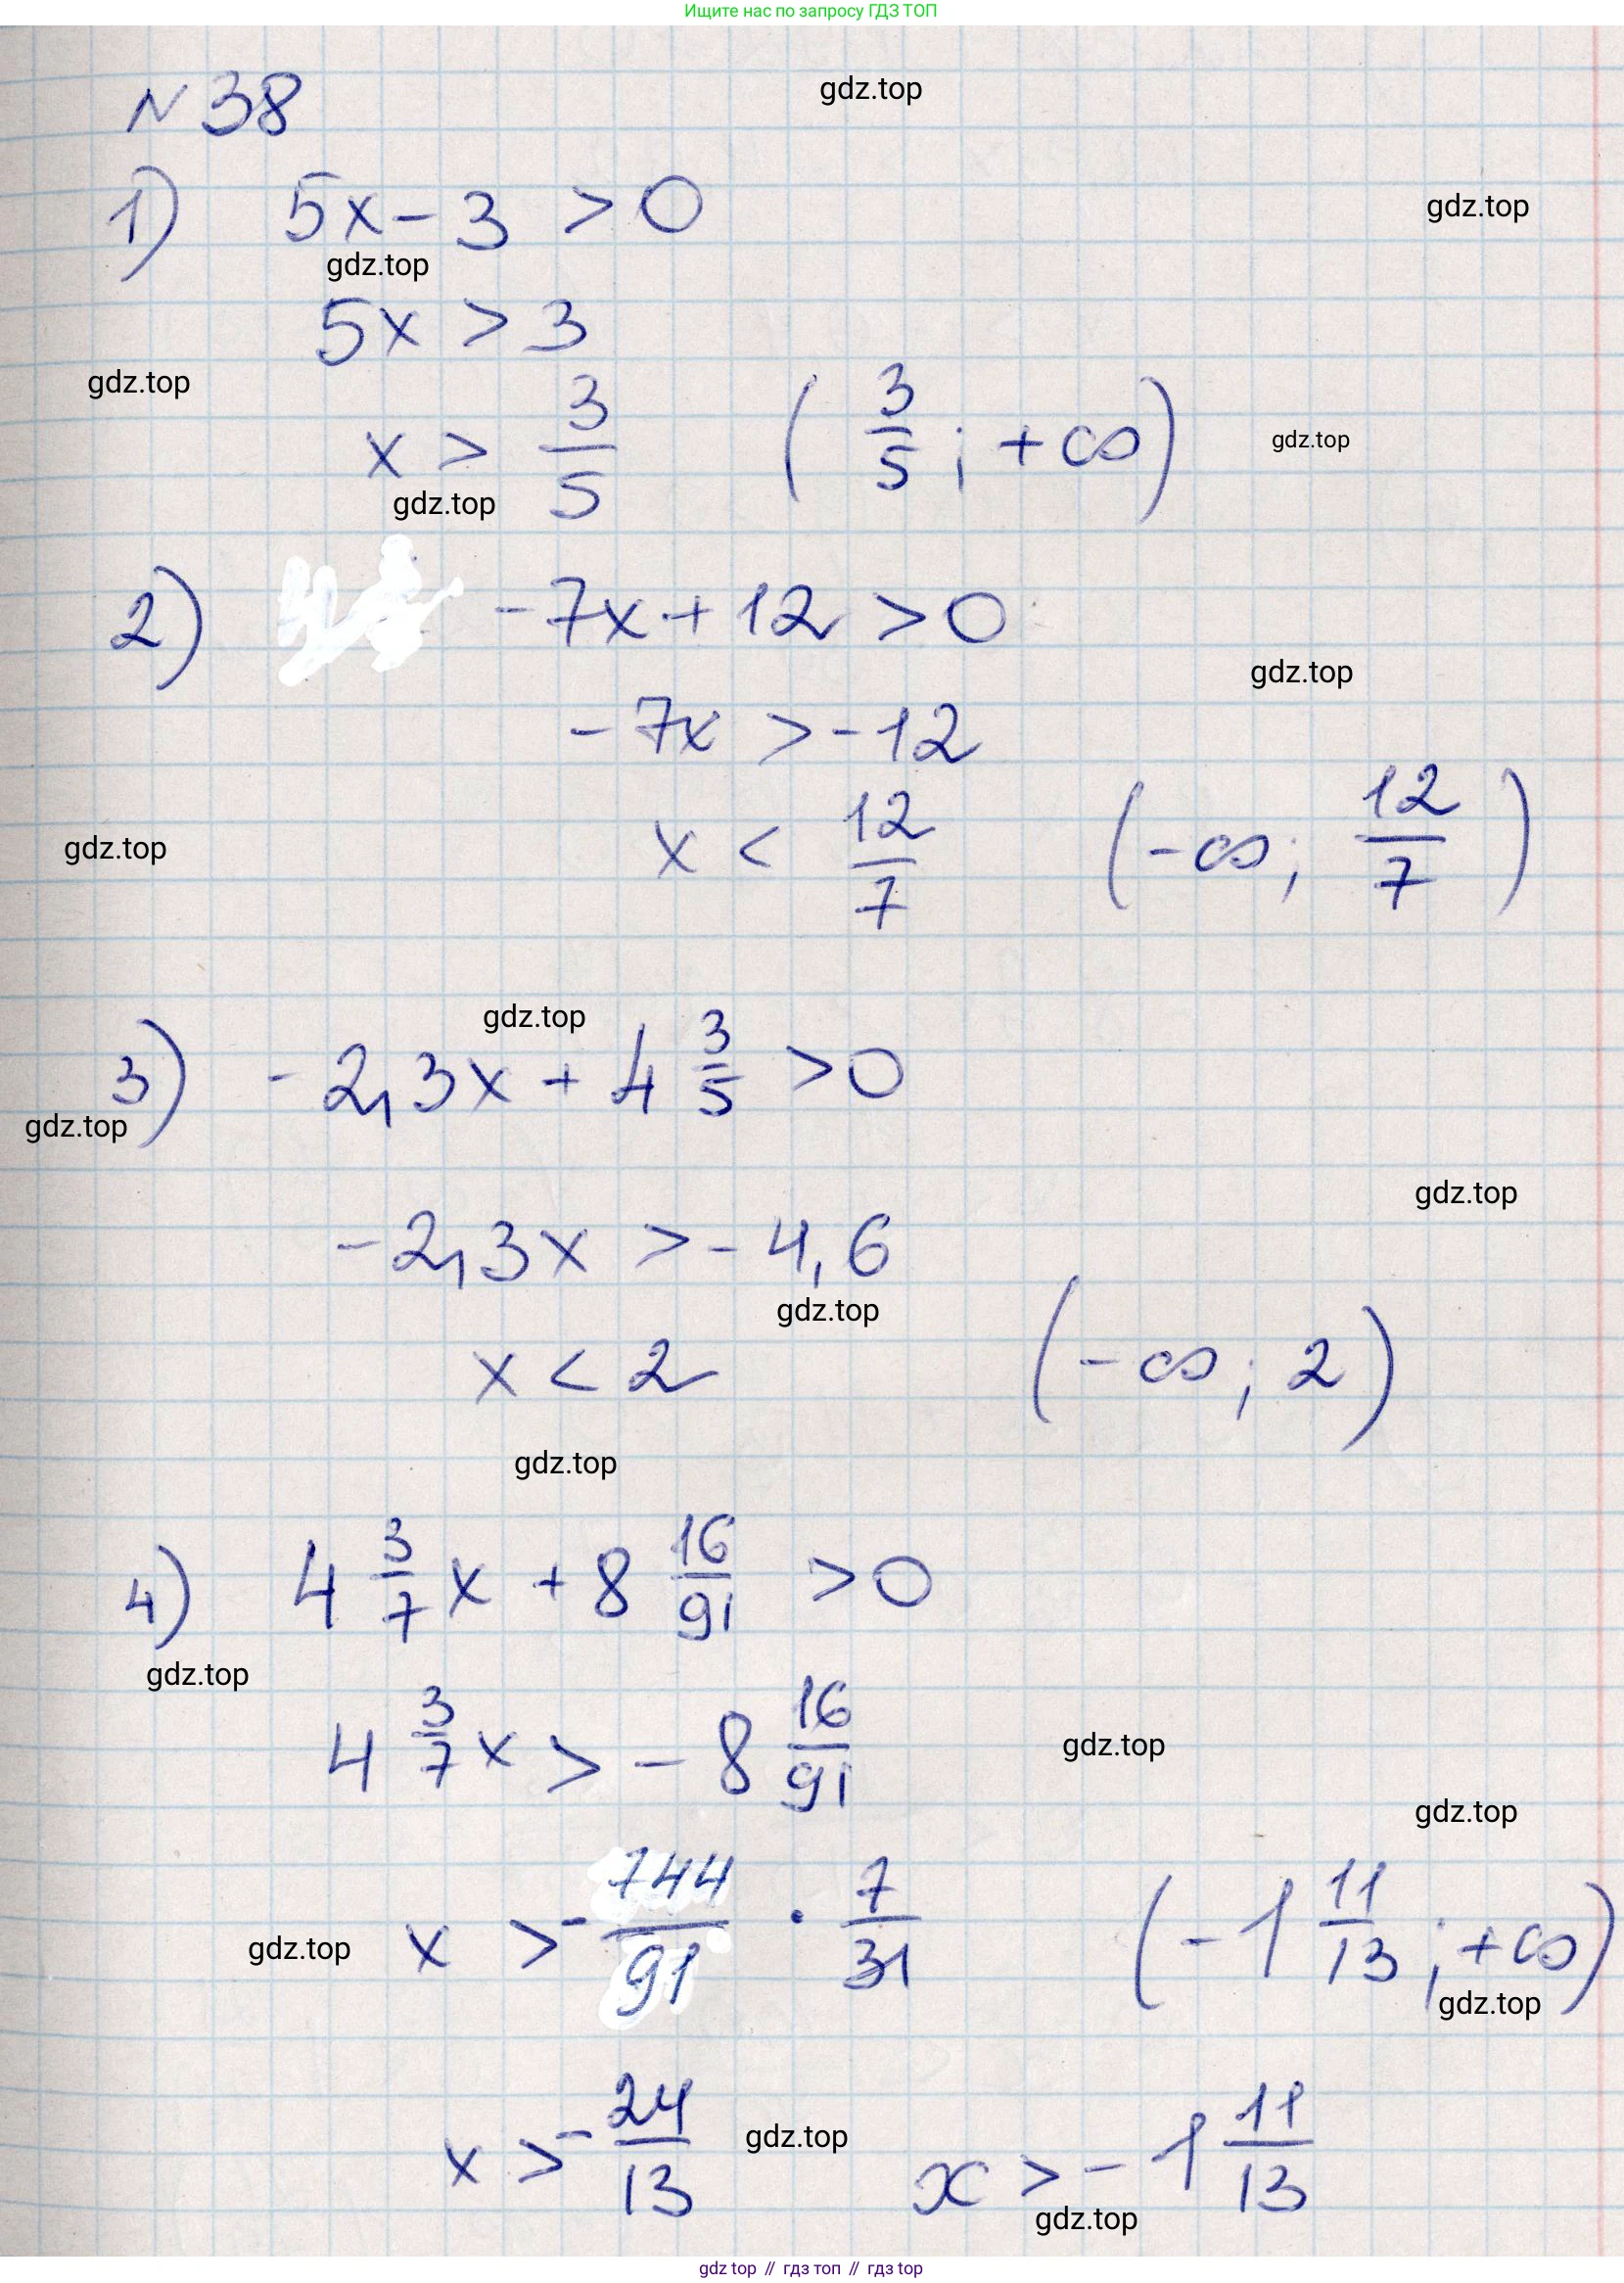 Ищите нас по запросу ГДЗ ТОП
N 38
gdz.top
1) 5x - 3 > 0
gdz.top
gdz.top
5x > 3
gdz.top
x > 3/5 ( 3/5 ; +∞)
gdz.top
gdz.top
2) -7x + 12 > 0
gdz.top
-7x > -12
x < 12/7 (-∞; 12/7)
gdz.top
gdz.top
3) -2,3x + 4 3/5 > 0
gdz.top
gdz.top
-2,3x > -4,6
gdz.top
x < 2 (-∞; 2)
gdz.top
4) 4 3/7 x + 8 16/91 > 0
gdz.top
4 3/7 x > -8 16/91
gdz.top
gdz.top
x > -744/91 · 7/31 (-1 11/13; +∞)
gdz.top
gdz.top
x > -24/13 x > -1 11/13
gdz.top
gdz.top
gdz top // гдз топ // гдз top